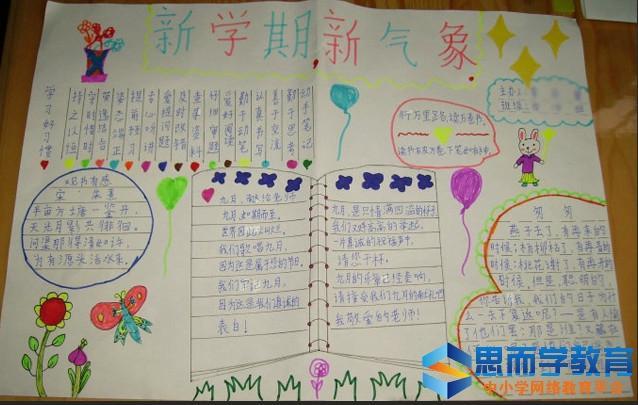 新学期新气象
主办:
班级:
学习好习惯
持之以恒
学时惜时
善思
姿态端正
提前预习
专心听讲
爱提问题
及时改错
查某资料
仔细审题
喜好阅读
勤于动笔
认真书写
善于交流
勤于思考
动手笔记
行万里路,读万卷书。
读书破万卷,下笔如有神。
观书有感
宋 朱熹
半亩方塘一鉴开,
天光云影共徘徊。
问渠那得清如许,
为有源头活水来。
九月,献给老师
九月如期而至。
世界因此
我们歌唱九月,
因为这是属于您的节日。
我们牢记九月,
因为这是我们真诚的
表白!
九月,是只情满四溢的杯子
我们双手高高的举起,
一片真诚的祝福声中,
请您干杯。
九月的乐章已经奏响,
请接受我们九月的献礼吧
我敬爱的老师!
匆匆
燕子去了,有再来的
时候;杨柳枯了,有再青的
时候;桃花谢了,有再开的
时候。但是,聪明的,
你告诉我,我们的日子为什
么一去不复返呢?——是有人偷
了他们罢:那是谁?又藏在
思而学教育
中小学网络教育平台